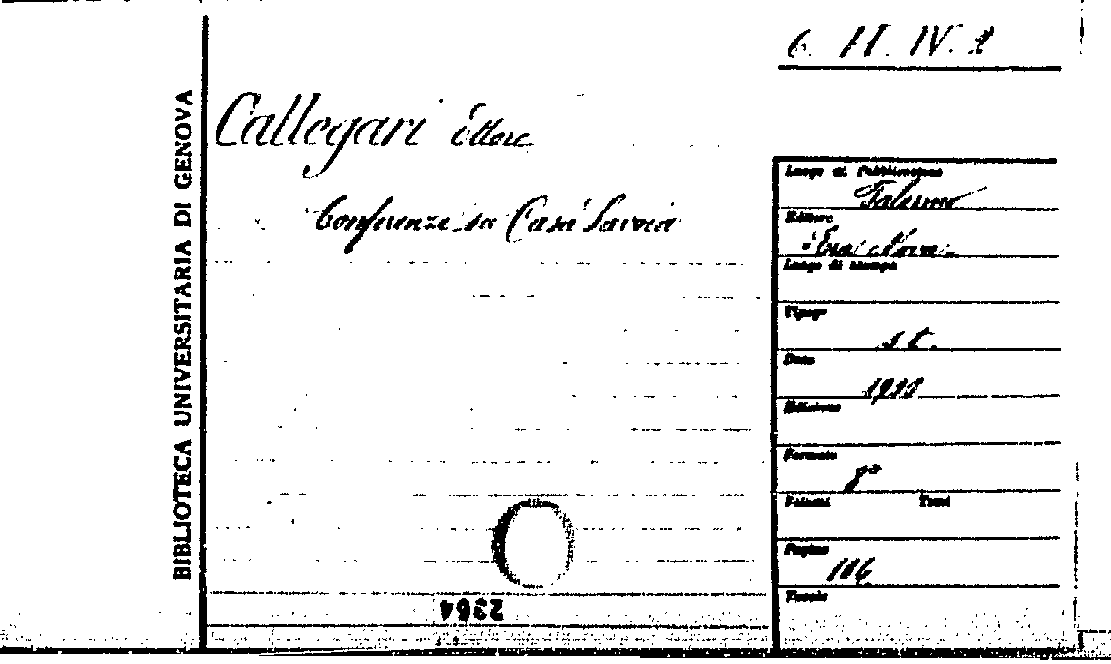 6. H. IV. 2
BIBLIOTECA UNIVERSITARIA DI GENOVA
Callegari Ettore
Conferenze su Casa Savoia
Luogo di Pubblicazione
Palermo
Editore
Era Nova
Luogo di stampa
Tipogr
s. t.
Data
Edizione
Formato
8°
Volumi Tomi
Pagine
106
Tavole
2364